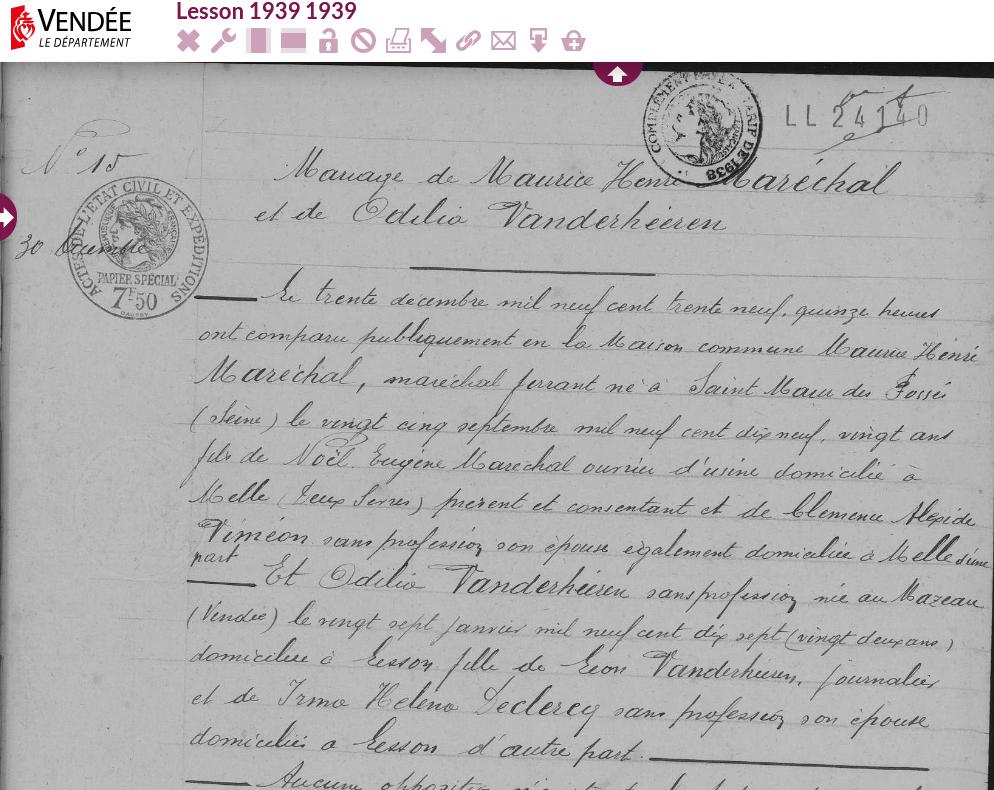 VENDÉE
LE DÉPARTEMENT
Lesson 1939 1939
COMPLÉMENT TARIF DE 1938
LL 24140
N° 15
30 Décembre
ACTES DE L'ETAT CIVIL ET EXPEDITIONS
REPUBLIQUE FRANÇAISE
PAPIER SPÉCIAL
7F50
Mariage de Maurice Henri Maréchal
et de Odilia Vanderheeren
Le trente décembre mil neuf cent trente neuf, quinze heures
ont comparu publiquement en la Maison commune Maurice Henri
Maréchal, maréchal ferrant né à Saint Maur des Fossés
(Seine) le vingt cinq septembre mil neuf cent dix neuf, vingt ans
fils de Noël Eugène Maréchal ouvrier d'usine domicilié à
Melle (Deux Sevres) présent et consentant et de Clemence Alexide
Viméon sans profession son épouse également domiciliée à Melle d'une
part
Et Odilia Vanderheeren sans profession née au Mazeau
(Vendée) le vingt sept janvier mil neuf cent dix sept (vingt deux ans)
domiciliée à Lesson fille de Léon Vanderheeren, journalier
et de Irma Helena Declercq sans profession son épouse
domiciliés à Lesson d'autre part.
Aucune opposition